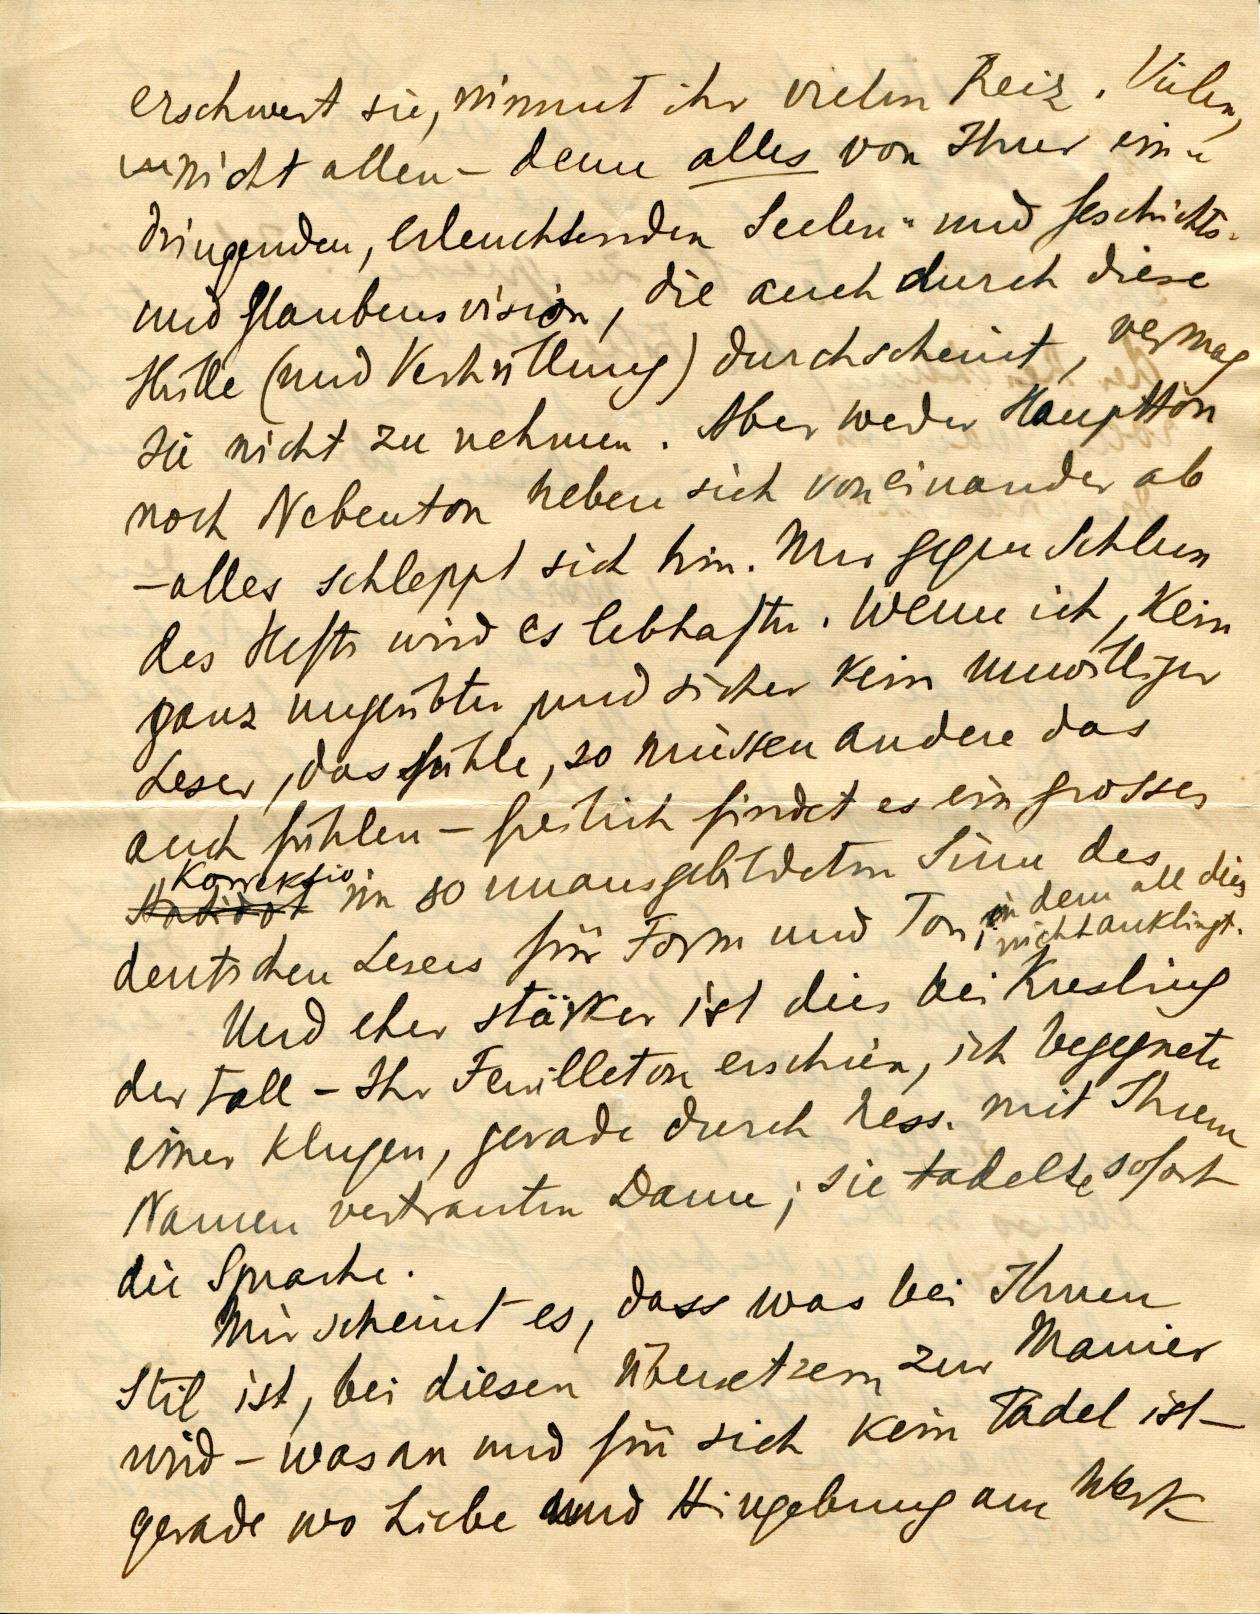 erschwert sie, nimmt ihr vielen Reiz. Vielen,
nicht allen – denn alles von Ihrer ein-
dringenden, erleuchtenden Seelen- und Geschichts-
und Glaubensvision, die auch durch diese
Hülle (und Verhüllung) durchscheint, vermag
sie nicht zu nehmen. Aber weder Hauptton
noch Nebenton heben sich voneinander ab
– alles schleppt sich hin. Nur gegen Schluss
des Hefts wird es lebhafter. Wenn ich, kein
ganz ungeübter und sicher kein unwilliger
Leser, das fühle, so müssen andere das
auch fühlen – freilich findet es ein grosses
Korrektiv
Antidot im so unausgebildeten Sinn des
deutschen Lesers für Form und Ton, in dem all dies
nicht anklingt.
Und eher stärker ist dies bei Kresling
der Fall – Ihr Feuilleton erschien, ich begegnete
einer klugen, gerade durch Ress. mit Ihrem
Namen vertrauten Dame; sie tadelte sofort
die Sprache.
Mir scheint es, dass was bei Ihnen
Stil ist, bei diesen Übersetzern zur Manier
wird – was an und für sich kein Tadel ist –
gerade wo Liebe und Hingebung am Werk